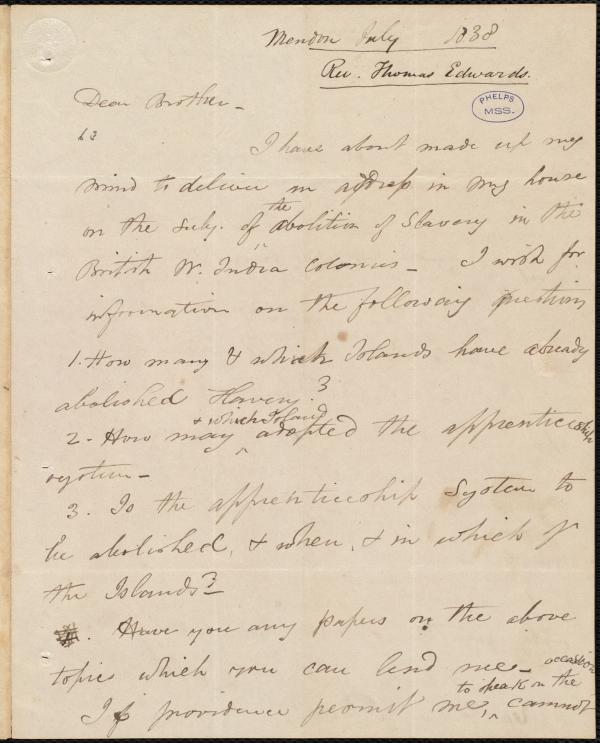 Mendon July 1838
Rev. Thomas Edwards.
PHELPS
MSS.
Dear Brother -
I have about made up my
mind to deliver an address in my house
on the subj. of the abolition of Slavery in the
British W. India Colonies - I wish for
information on the following questions
1. How many & which Islands have already
abolished Slavery?
2. How many & which Island adopted the apprenticeship
system -
3. Is the apprenticeship System to
be abolished, & when, & in which of
the Islands?
Have you any papers on the above
topic which you can lend me -
If providence permit me, to speak on the occasion cannot